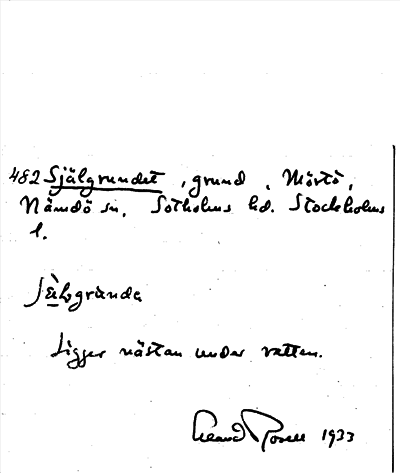 482 Själgrundet, grund, Mörtö,
Nämdö sn, Sotholms hd. Stockholms
l.
Ligger nästan under vatten.
1933